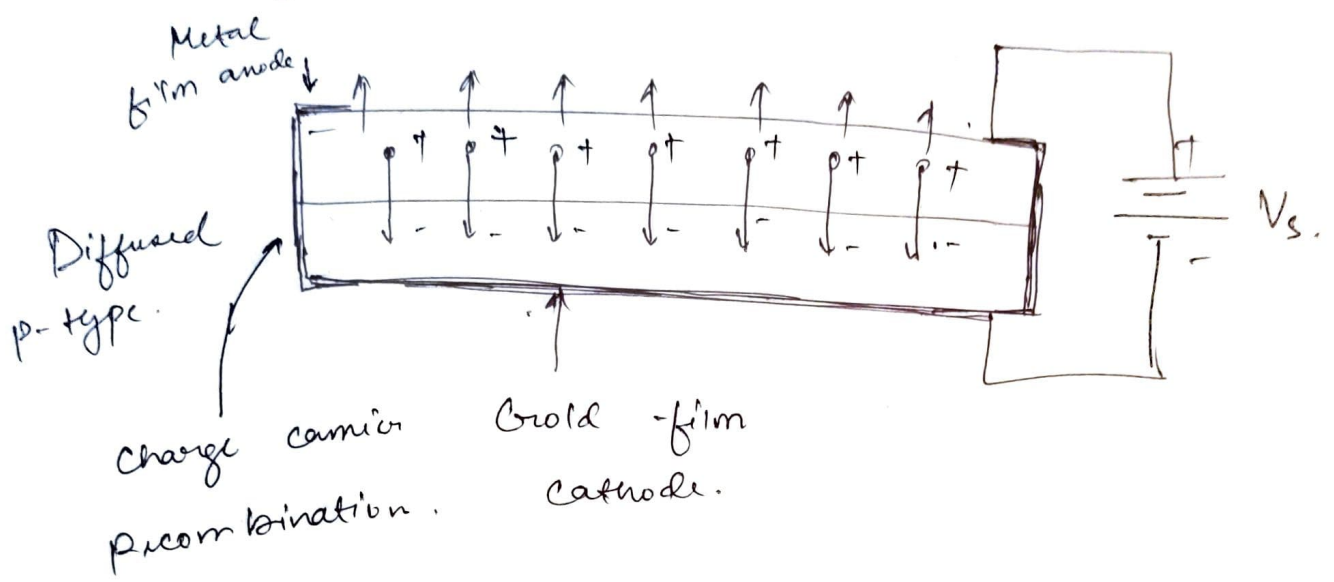 Metal
film anode
- + + + + + + +
- - - - - - -
+
Vs.
-
Diffused
p-type.
Charge carrier
Recombination.
Gold-film
Cathode.